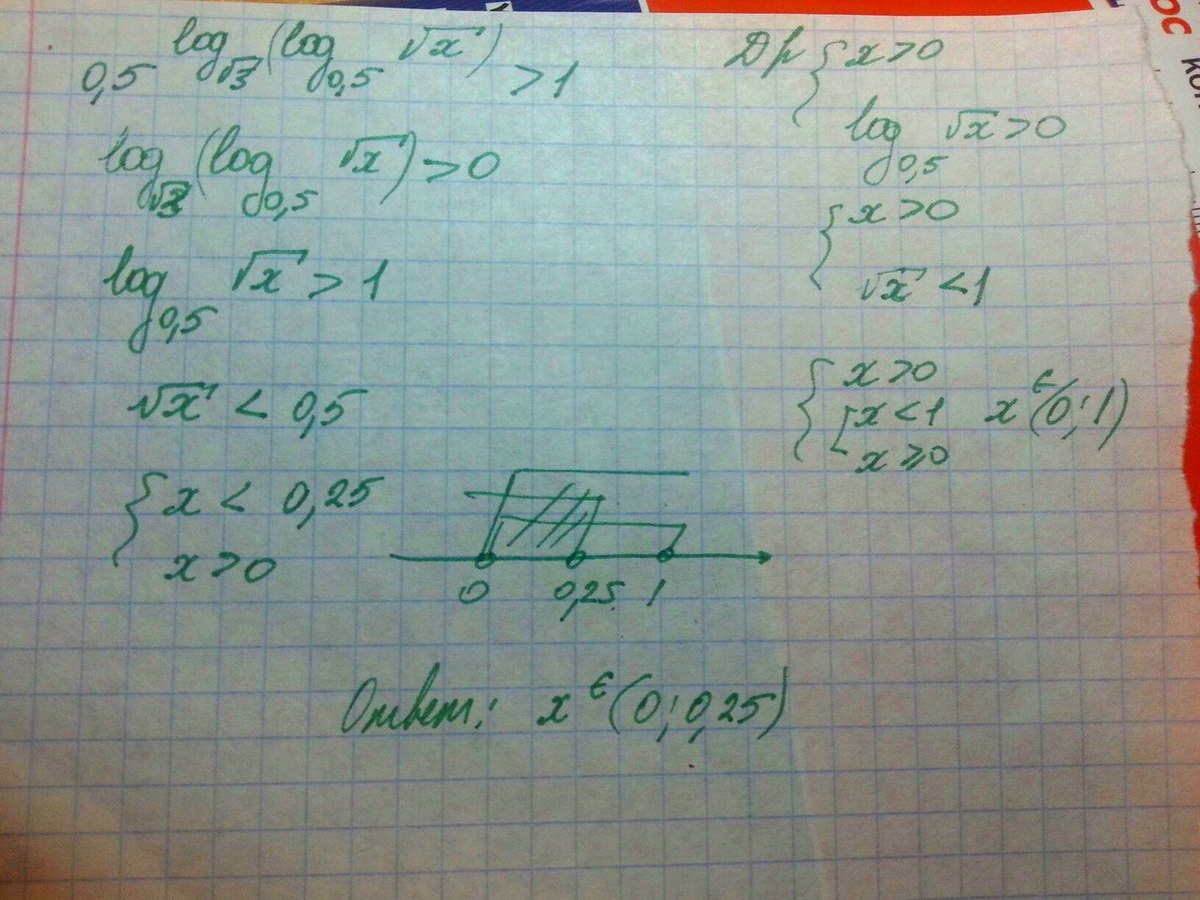 0,5^(log_√3 (log_0,5 √x)) > 1
log_√3 (log_0,5 √x) > 0
log_0,5 √x > 1
√x < 0,5
{ x < 0,25
x > 0
Др { x > 0
log_0,5 √x > 0
{ x > 0
√x < 1
{ x > 0
[ x < 1 x ∈ (0; 1)
x ⩾ 0
0 0,25 1
Ответ: x ∈ (0; 0,25)
ОС